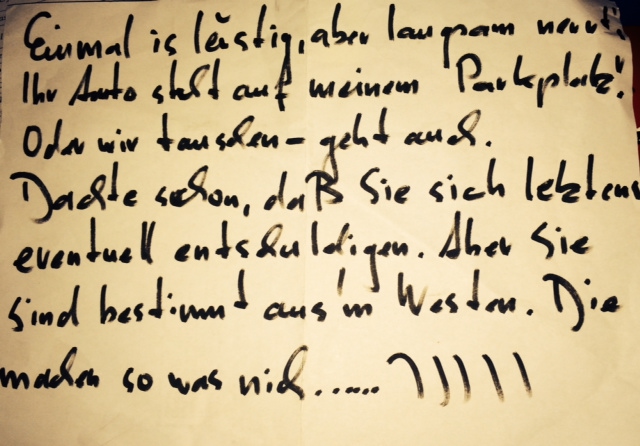 Einmal is lüstig, aber langsam nervt!
Ihr Auto steht auf meinem Parkplatz!
Oder wir tauschen – geht auch.
Dachte schon, daß Sie sich letztens
eventuell entschuldigen. Aber Sie
sind bestimmt aus'm Westen. Die
machen so was nich...... )))))